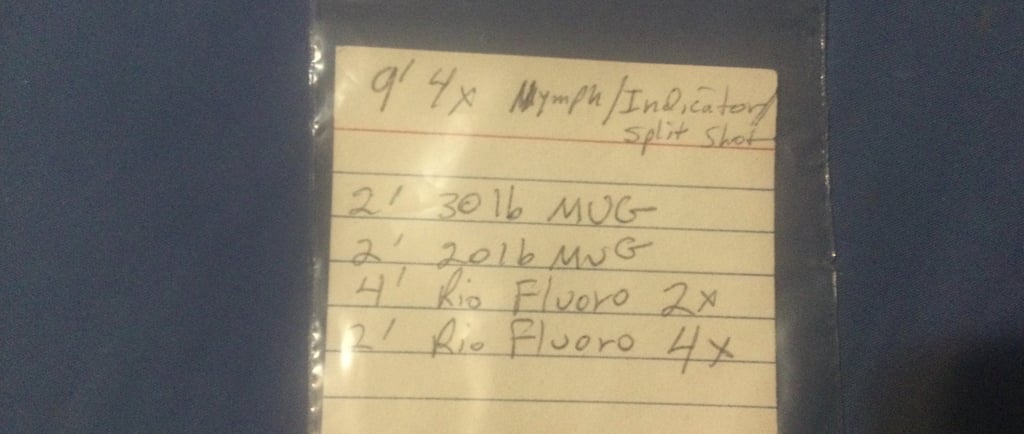 9' 4x Nymph/Indicator/
Split Shot
2' 30lb MUG
2' 20lb MUG
4' Rio Fluoro 2x
2' Rio Fluoro 4x